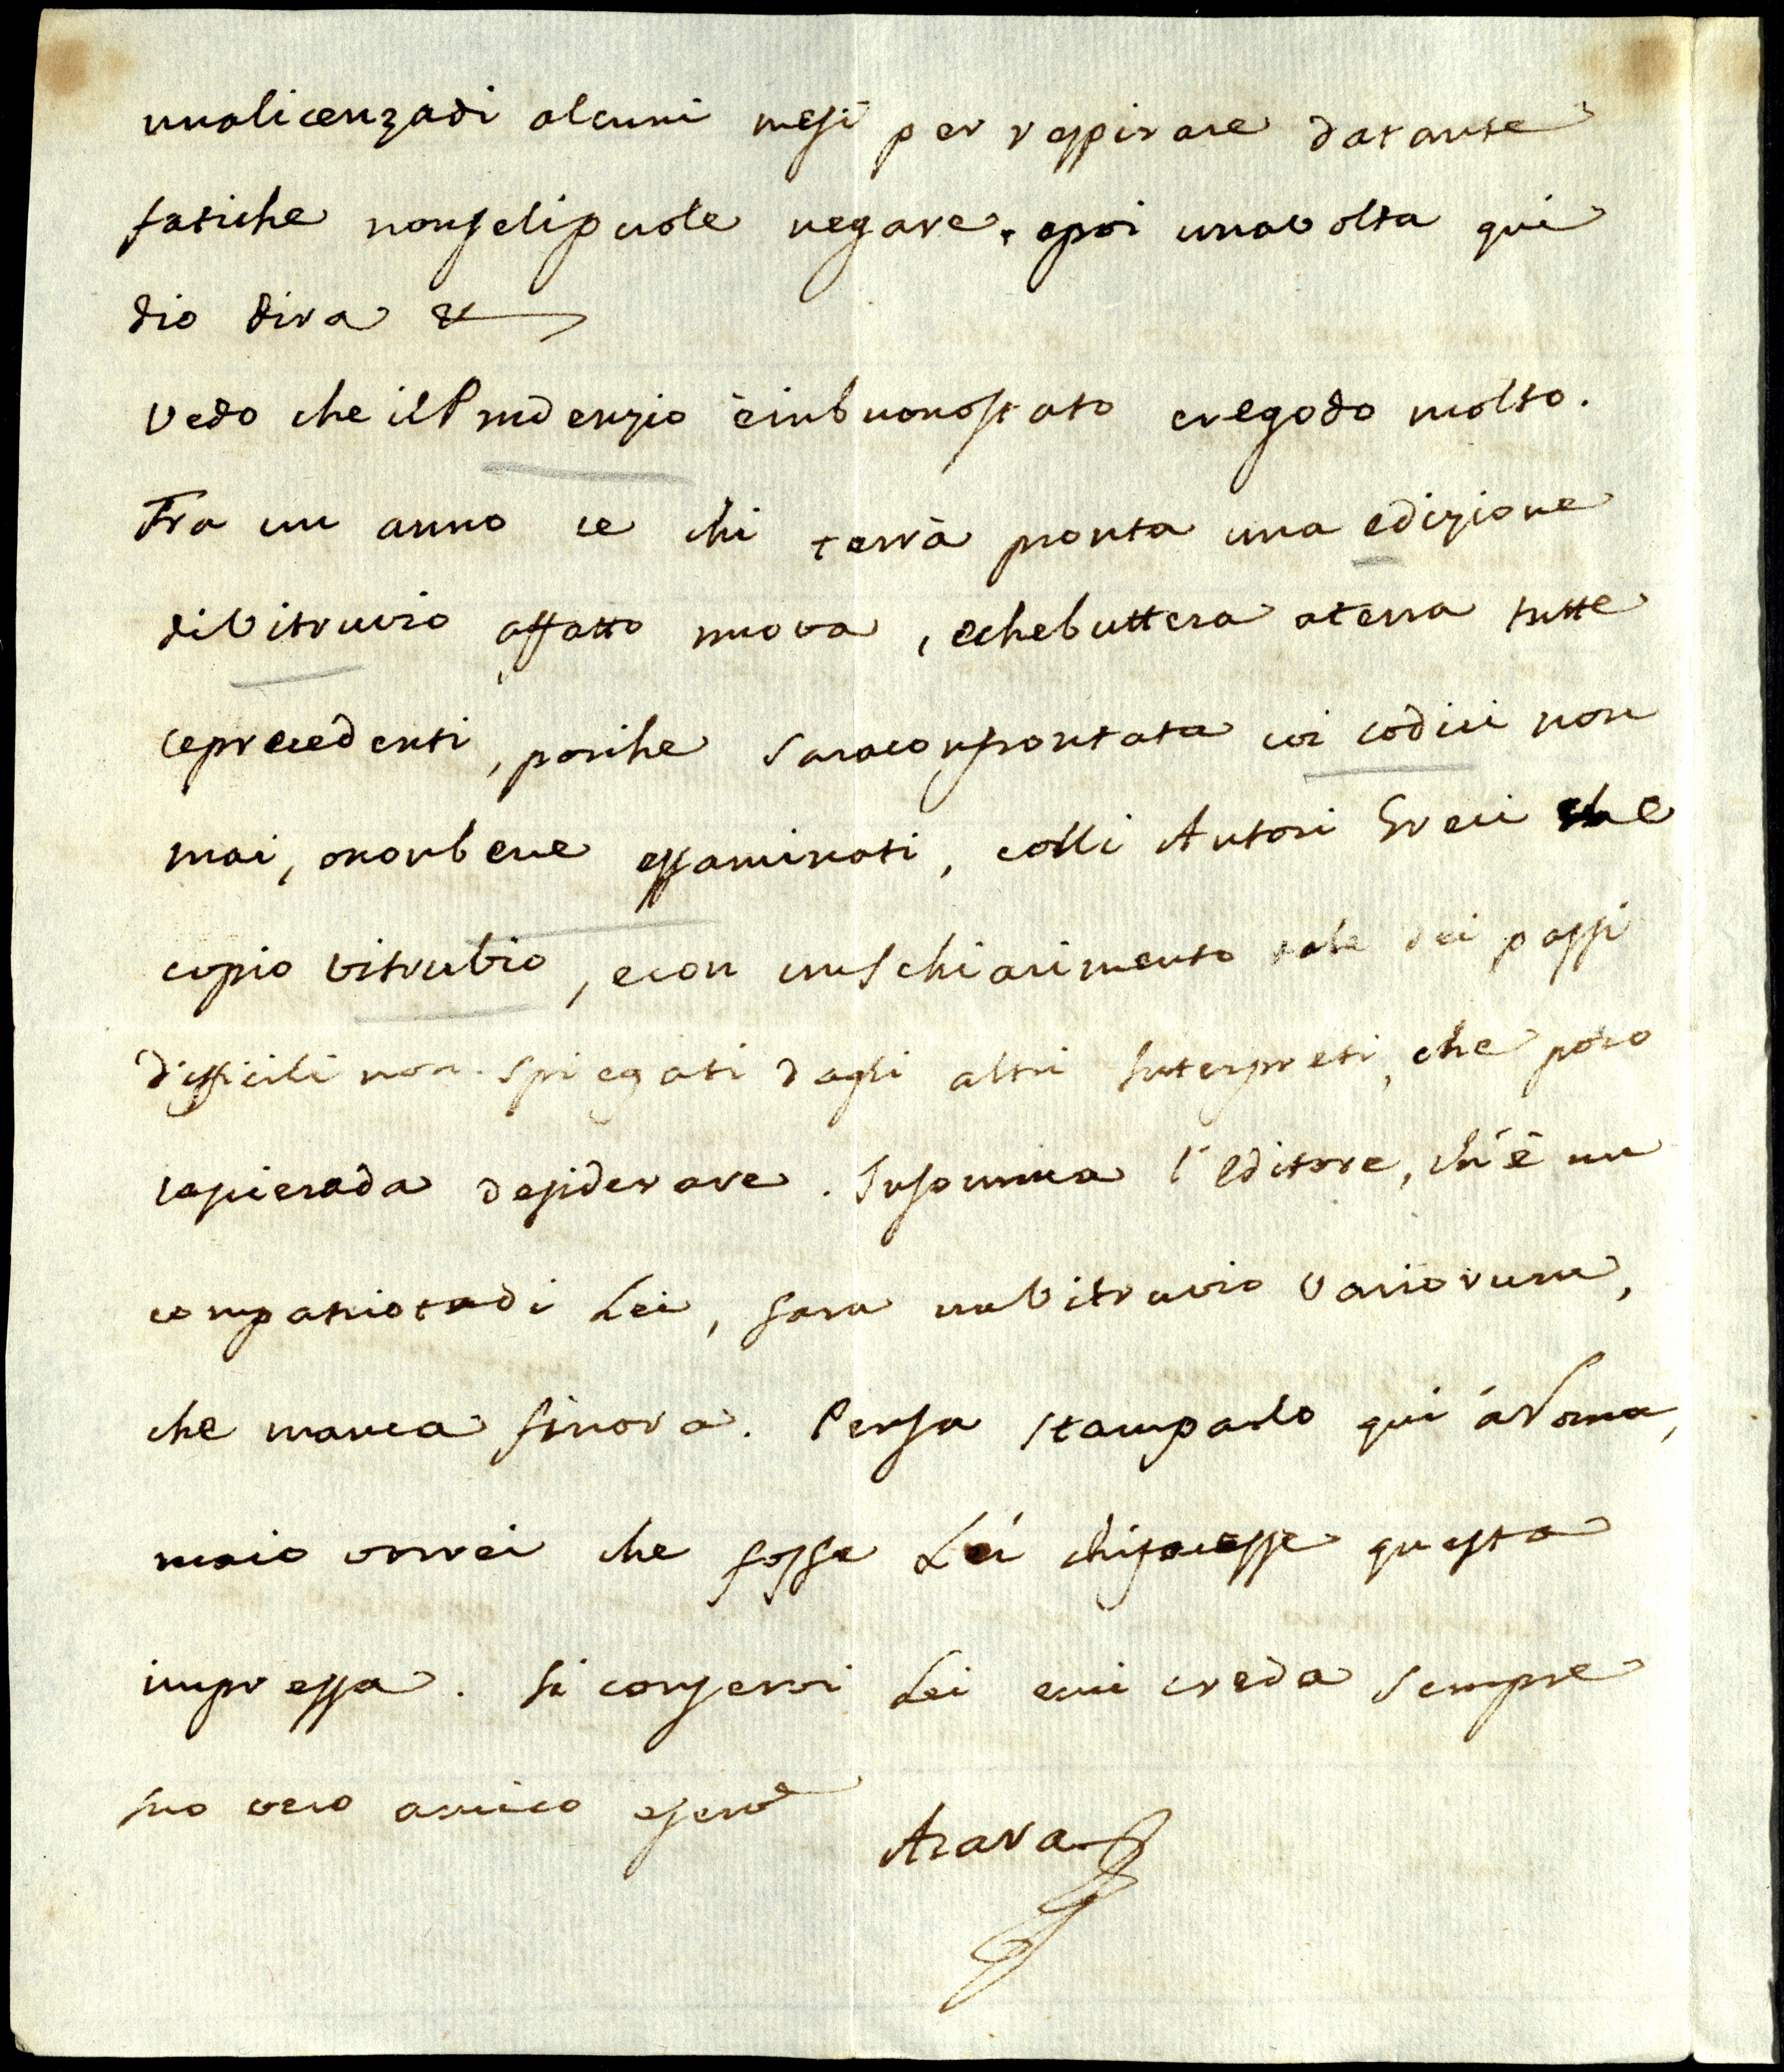 unalicenzadi alcuni mesi per respirare datante
fatiche nonselipuole negare. epoi unavolta qui
dio dira &
Vedo che ilPrudenzio èinbuonostato eregodo molto.
Fra un anno ce chi terrà pronta una edizione
diVitruvio affatto nuova, echebuttera aterra tutte
leprecedenti, poiche saraconfrontata coi codici non
mai, ononbene essaminati, colli Autori Greci che
copio Vitrubio, econ unschiarimento tale dei passi
difficili non spiegati dagli altri Interpreti, che poco
lascierada desiderare. Insomma l'Editore, ch'è un
compatriotadi Lei, fara unVitruvio Variorum,
che manca finora. Pensa stamparlo qui áRoma,
maio vorrei che fosse Lei chifacesse questa
impressa. Si conservi Lei emi creda sempre
suo vero amico eserv.e
Azara